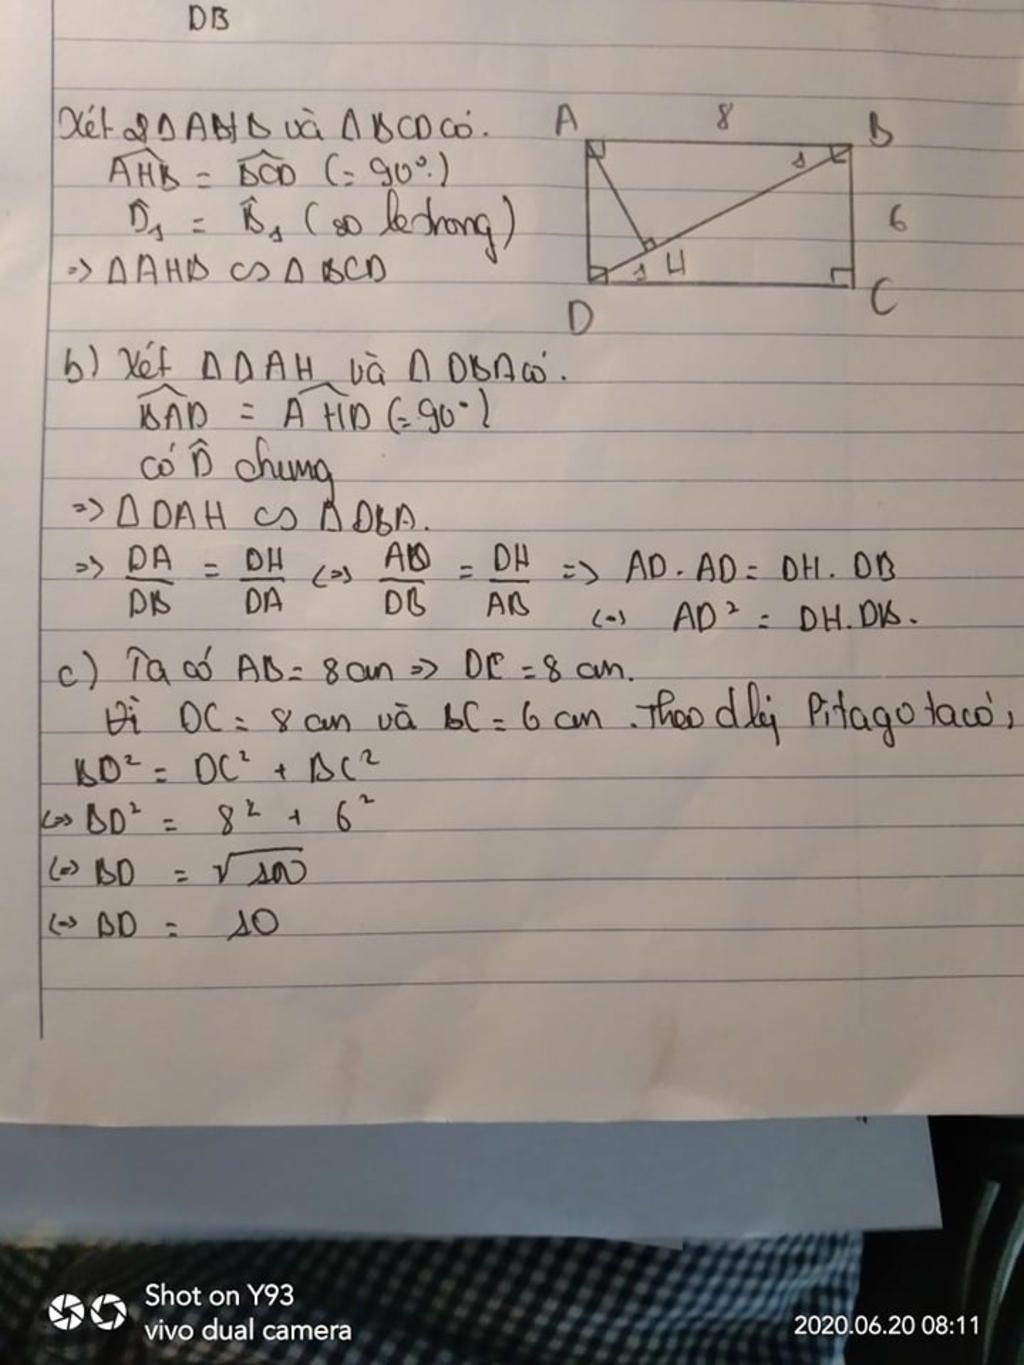 DB
Xét 2 Δ AHB và Δ BCD có.
AHB = BCD (= 90°)
D̂₁ = B̂₁ (so le trong)
=> Δ AHB ∽ Δ BCD
A 8 B
1
6
1 H
D C
b) Xét Δ DAH và Δ DBA có.
BAD = AHD (= 90°)
có D̂ chung
=> Δ DAH ∽ Δ DBA.
=> DA/DB = DH/DA (=) AD/DB = DH/AB => AD . AD = DH . DB
(=) AD² = DH . DB.
c) Ta có AB = 8 cm => DC = 8 cm.
Vì DC = 8 cm và BC = 6 cm . Theo đlý Pitago ta có,
BD² = DC² + BC²
(=) BD² = 8² + 6²
(=) BD = √100
(=) BD = 10
Shot on Y93
vivo dual camera
2020.06.20 08:11